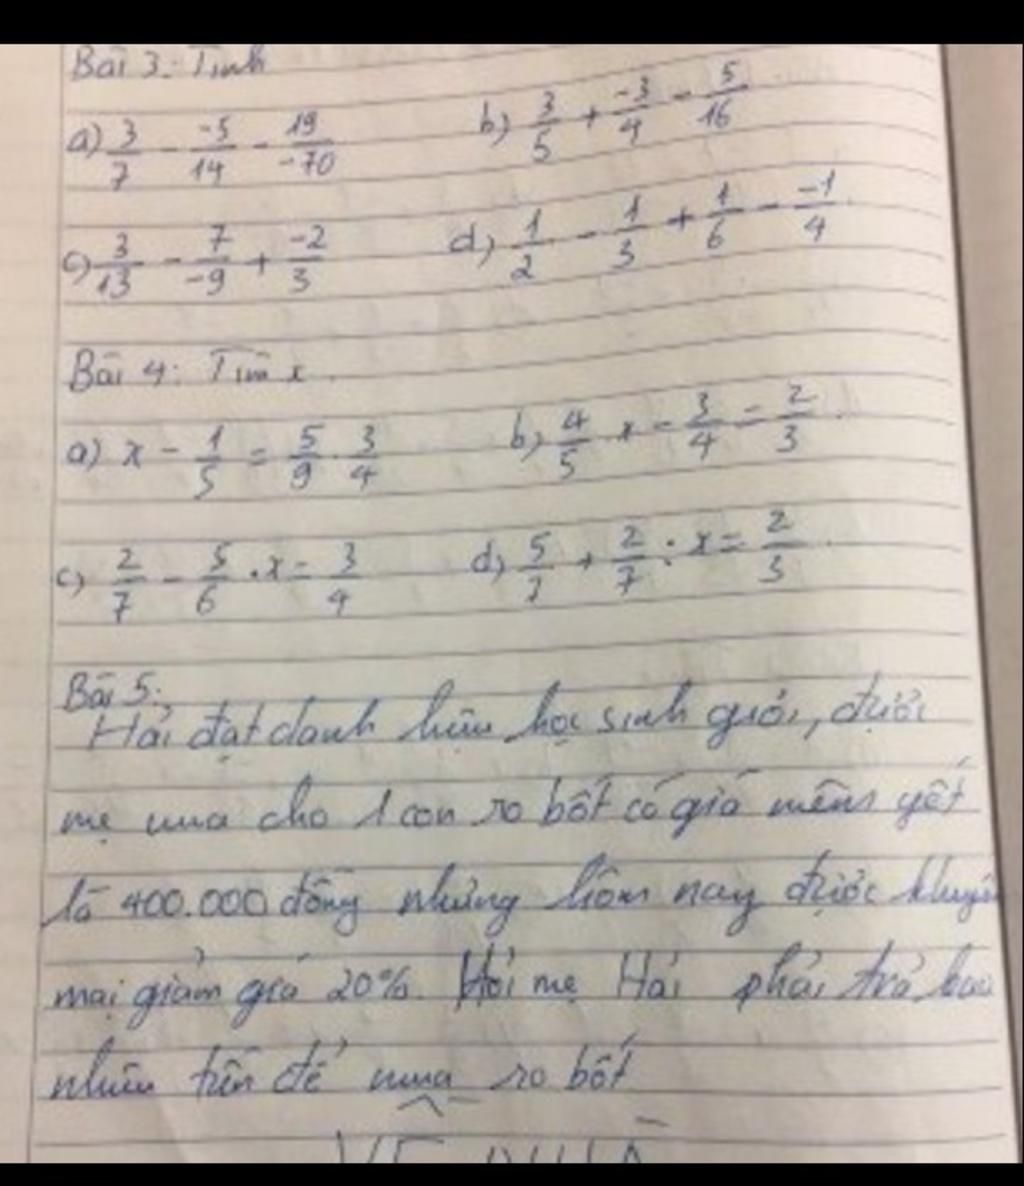 Bài 3: Tính
a) 3/7 - -5/14 - 19/-70 b) 3/5 + -3/4 - 5/16
c) 3/13 - 7/-9 + -2/3 d) 1/2 - 1/3 + 1/6 - -1/4
Bài 4: Tìm x
a) x - 1/5 = 5/9 . 3/4 b) 4/5 . x - 3/4 = 2/3
c) 2/7 - 5/6 . x = 3/4 d) 5/7 + 2/7 : x = 2/3
Bài 5:
Hải đạt danh hiệu học sinh giỏi, được
mẹ mua cho 1 con rô bốt có giá niêm yết
là 400.000 đồng nhưng hôm nay được khuyến
mại giảm giá 20%. Hỏi mẹ Hải phải trả bao
nhiêu tiền để mua rô bốt